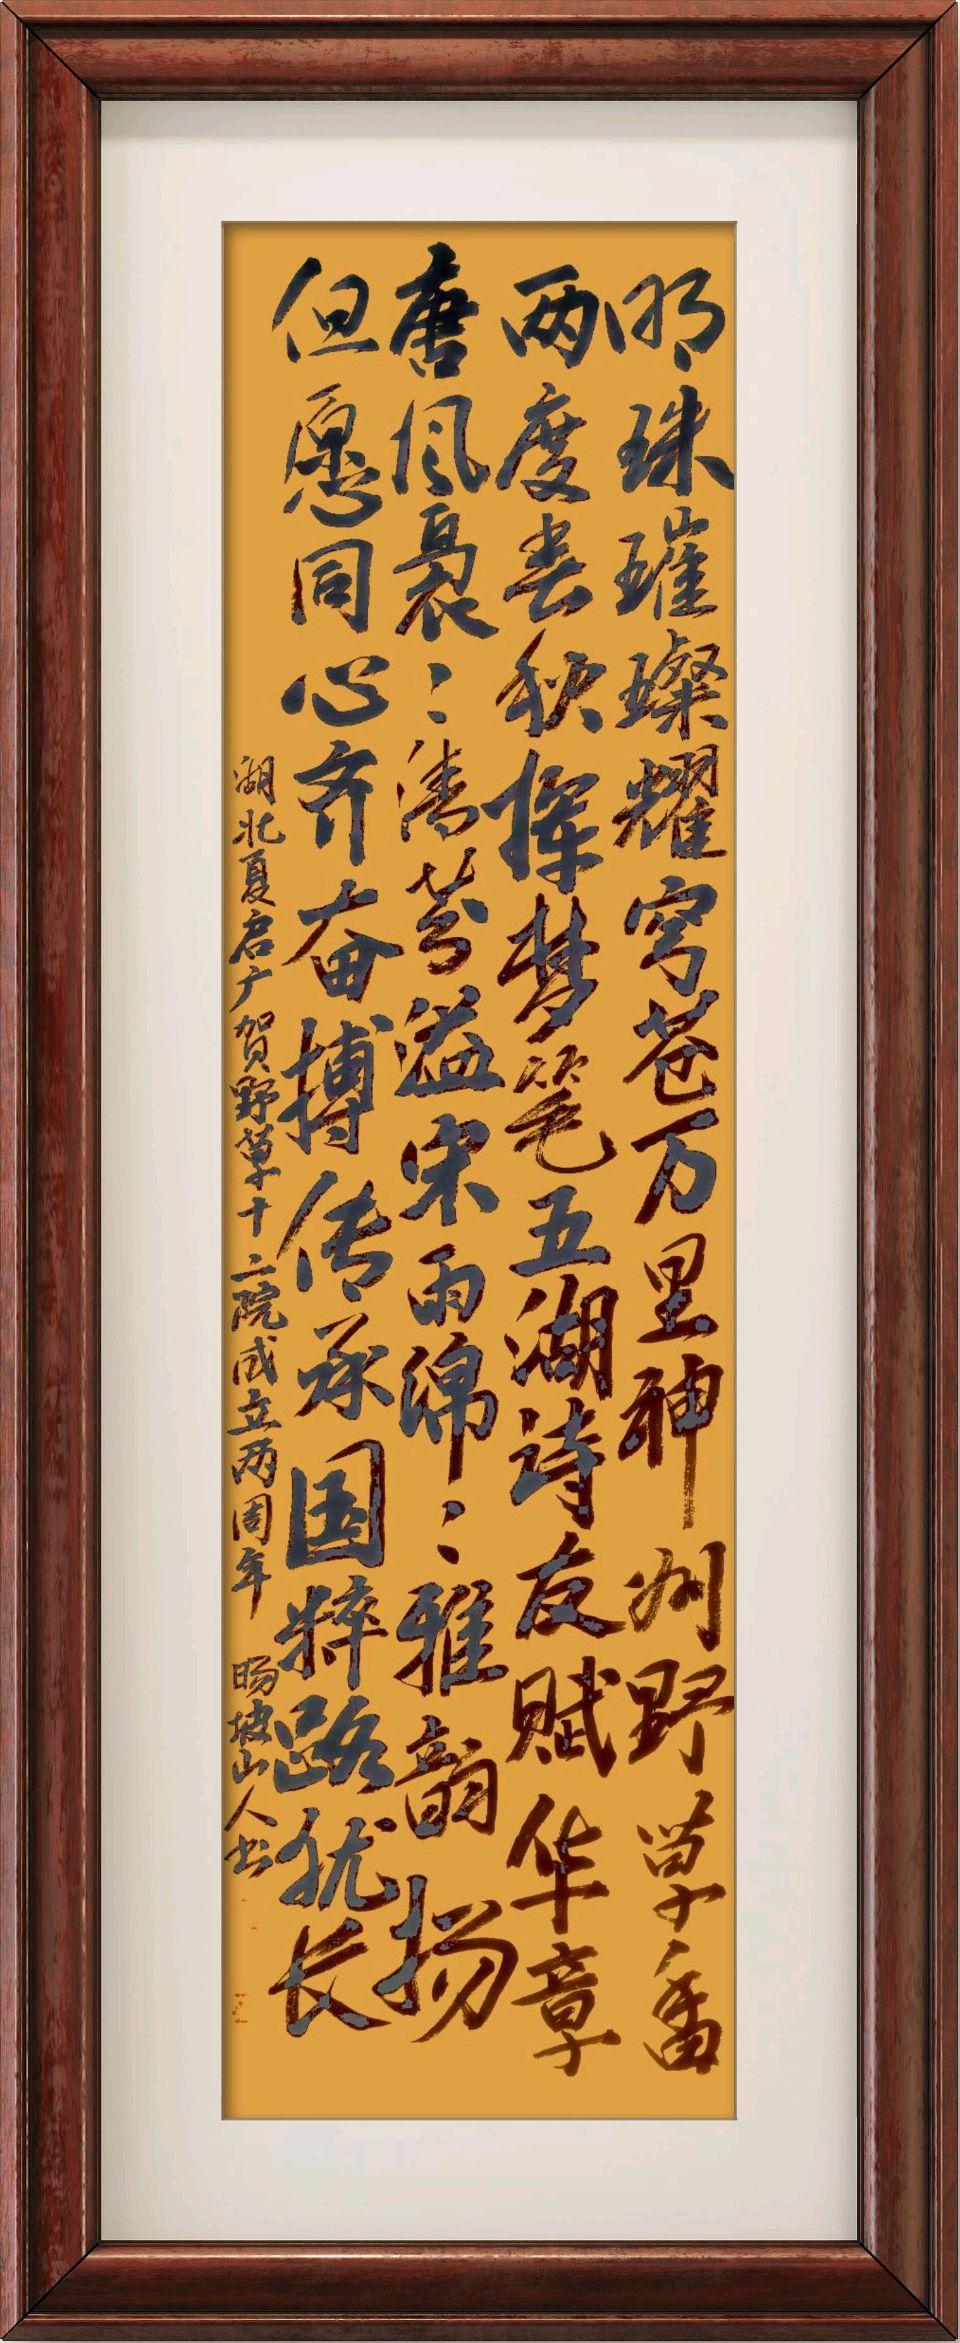 明珠璀璨耀穹苍万里神州野草香
两度春秋挥梦笔五湖诗友赋华章
唐风袅〻清芬溢宋雨绵〻雅韵扬
但愿同心齐奋搏传承国粹路犹长
湖北夏启广贺野草十二院成立两周年 旸坡山人书